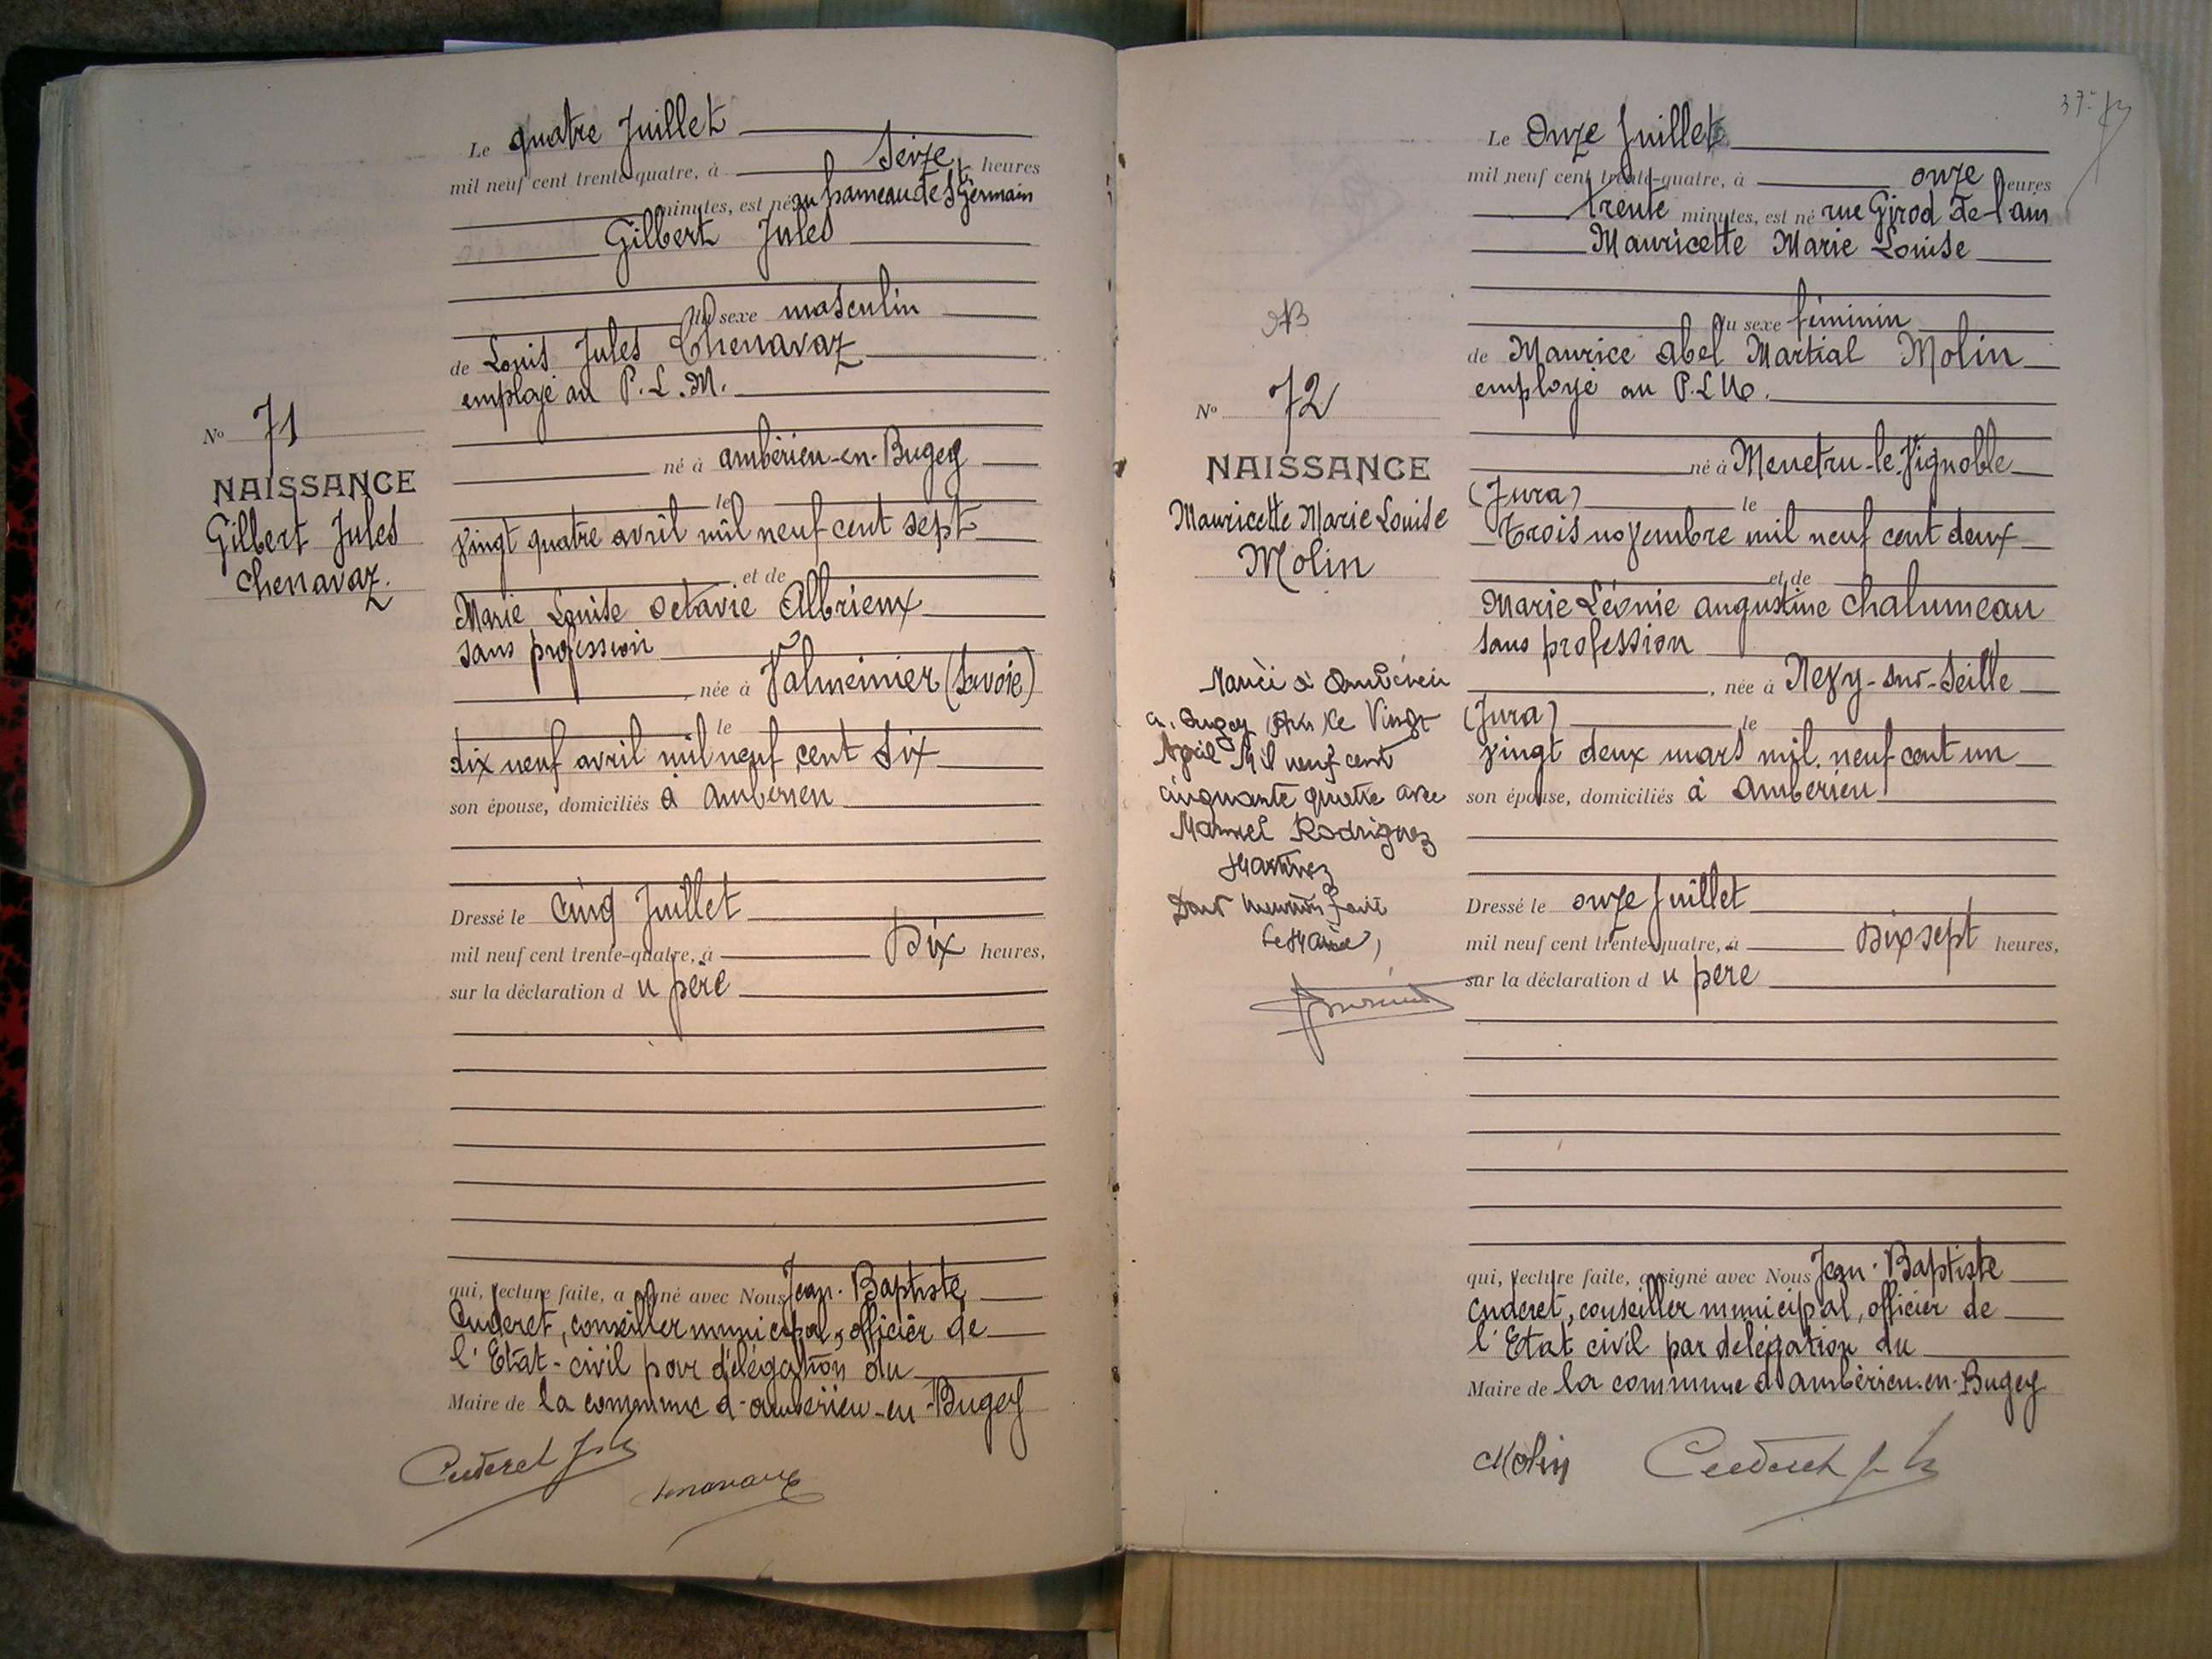 Le quatre Juillet
mil neuf cent trente-quatre, à seize heures
minutes, est né au hameau de St Germain
Gilbert Jules
du sexe masculin
de Louis Jules Chenavaz
employé au P.L.M.
né à ambérieu-en-Bugey
le
vingt quatre avril mil neuf cent sept
et de
Marie Louise Octavie Albrieux
sans profession
née à Valmeinier (Savoie)
le
dix neuf avril mil neuf cent six
son épouse, domiciliés à ambérieu
Dressé le cinq Juillet
mil neuf cent trente-quatre, à dix heures,
sur la déclaration du père
qui, lecture faite, a signé avec Nous Jean-Baptiste
Cuderet, conseiller municipal, officier de
l'Etat-civil par délégation du
Maire de la commune d'ambérieu-en-Bugey
Cuderet
Chenavaz
No 71
NAISSANCE
Gilbert Jules
Chenavaz.
No 72
NAISSANCE
Mauricette Marie Louise
Molin
Mariée à Ambérieu
en Bugey Ain le Vingt
Avril Mil neuf cent
cinquante quatre avec
Manuel Rodriguez
Martinez
Dont mention faite
Le Maire,
37
Le Onze Juillet
mil neuf cent trente-quatre, à onze heures
trente minutes, est né rue Girod de l'ain
Mauricette Marie Louise
du sexe féminin
de Maurice abel Martial Molin
employé au P.L.M.
né à Menetru-le-Vignoble
(Jura) le
Trois novembre mil neuf cent deux
et de
Marie Léonie augustine Chalumeau
sans profession
, née à Nevy-sur-Seille
(Jura) le
vingt deux mars mil neuf cent un
son épouse, domiciliés à Ambérieu
Dressé le onze Juillet
mil neuf cent trente-quatre, à dix sept heures,
sur la déclaration du père
qui, lecture faite, a signé avec Nous Jean-Baptiste
Cuderet, conseiller municipal, officier de
l'Etat civil par délégation du
Maire de la commune d'ambérieu-en-Bugey
Molin
Cuderet